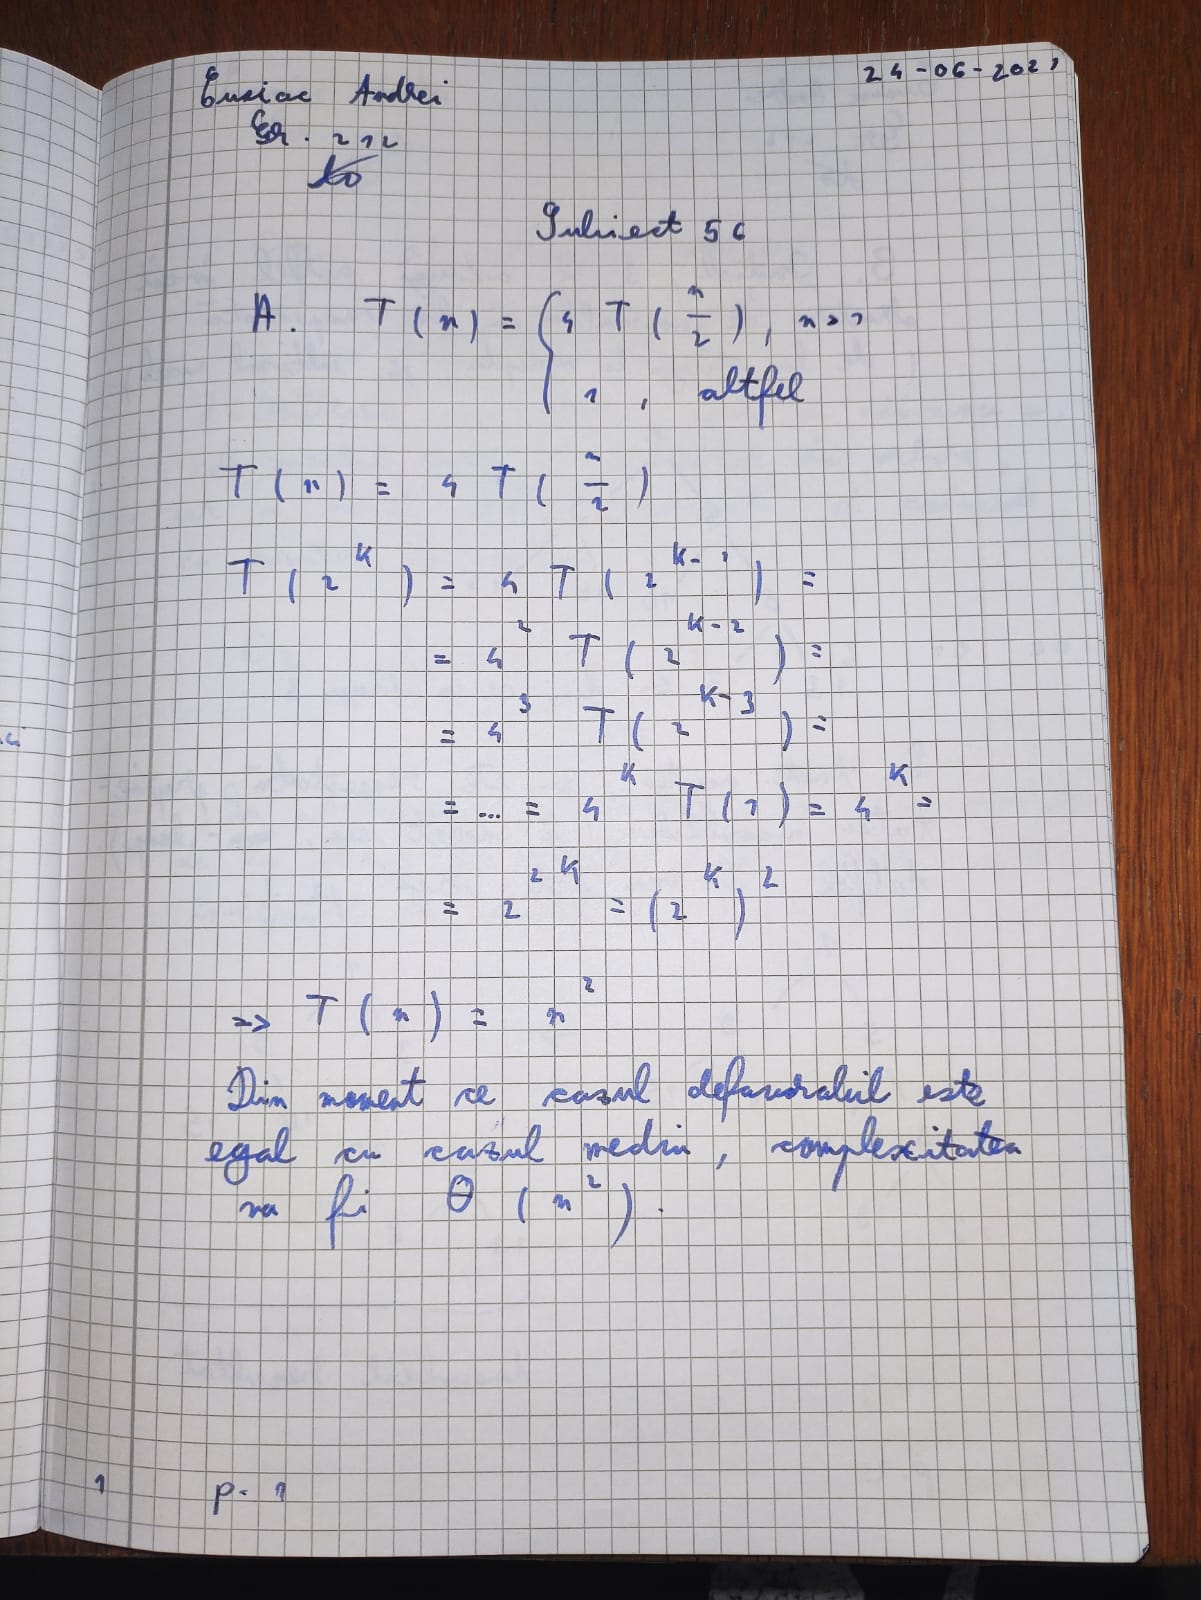 24-06-2021
Andrei
Gr. 212
Subiect 56
A. T(n) = { 4 T(n/2), n > 1
1, altfel
T(n) = 4 T(n/2)
T(2^k) = 4 T(2^(k-1)) =
= 4^2 T(2^(k-2)) =
= 4^3 T(2^(k-3)) =
= ... = 4^k T(1) = 4^k =
= 2^(2k) = (2^k)^2
=> T(n) = n^2
Din moment ce cazul defavorabil este
egal cu cazul mediu, complexitatea
va fi Θ(n^2).
1
p. 1